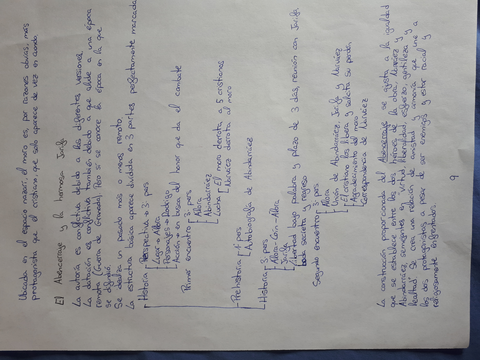 Ubicada en el espacio nazarí, el moro es, por razones obvias, más
protagonista que el cristiano, que solo aparece de vez en cuando.
El Abencerraje y la hermosa Jarifa
La autoría es conflictiva debido a las diferentes versiones.
La datación es conflictiva también debido a que alude a una época
remota (Guerra de Granada). Pero se conoce la época en la que
se difunde.
Se idealiza un pasado más o menos remoto.
La estructura básica aparece dividida en 3 partes perfectamente marcadas
Historia
3 pers
Lugar → Álora
Personajes → Rodrigo
Acción → en busca del honor que da el combate
Primer encuentro
3ª pers
Álora
Abindarráez
Lucha
El moro derrota a 5 cristianos
Narváez derrota al moro
Prehistoria
1ª pers
Autobiografía de Abindarráez
Historia
3ª pers
Álora - Coín - Álora
Jarifa
Libertad bajo palabra y plazo de 3 días, reunión con Jarifa
boda secreta y regreso
Segundo encuentro
3ª pers
Álora
Unión de Abindarráez, Jarifa y Narváez
El cristiano los libera y solicita su perdón
Agradecimiento del moro
Correspondencia de Narváez
La construcción proporcionada del Abencerraje se ajusta a la igualdad
que se establece entre los dos héroes de la obra, Narváez y
Abindarráez semejantes en virtud, liberalidad, esfuerzo, gentileza y
lealtad. Se crea una relación de amistad y armonía que une a
los dos protagonistas a pesar de ser enemigos y estar racial y
religiosamente enfrentados.
9